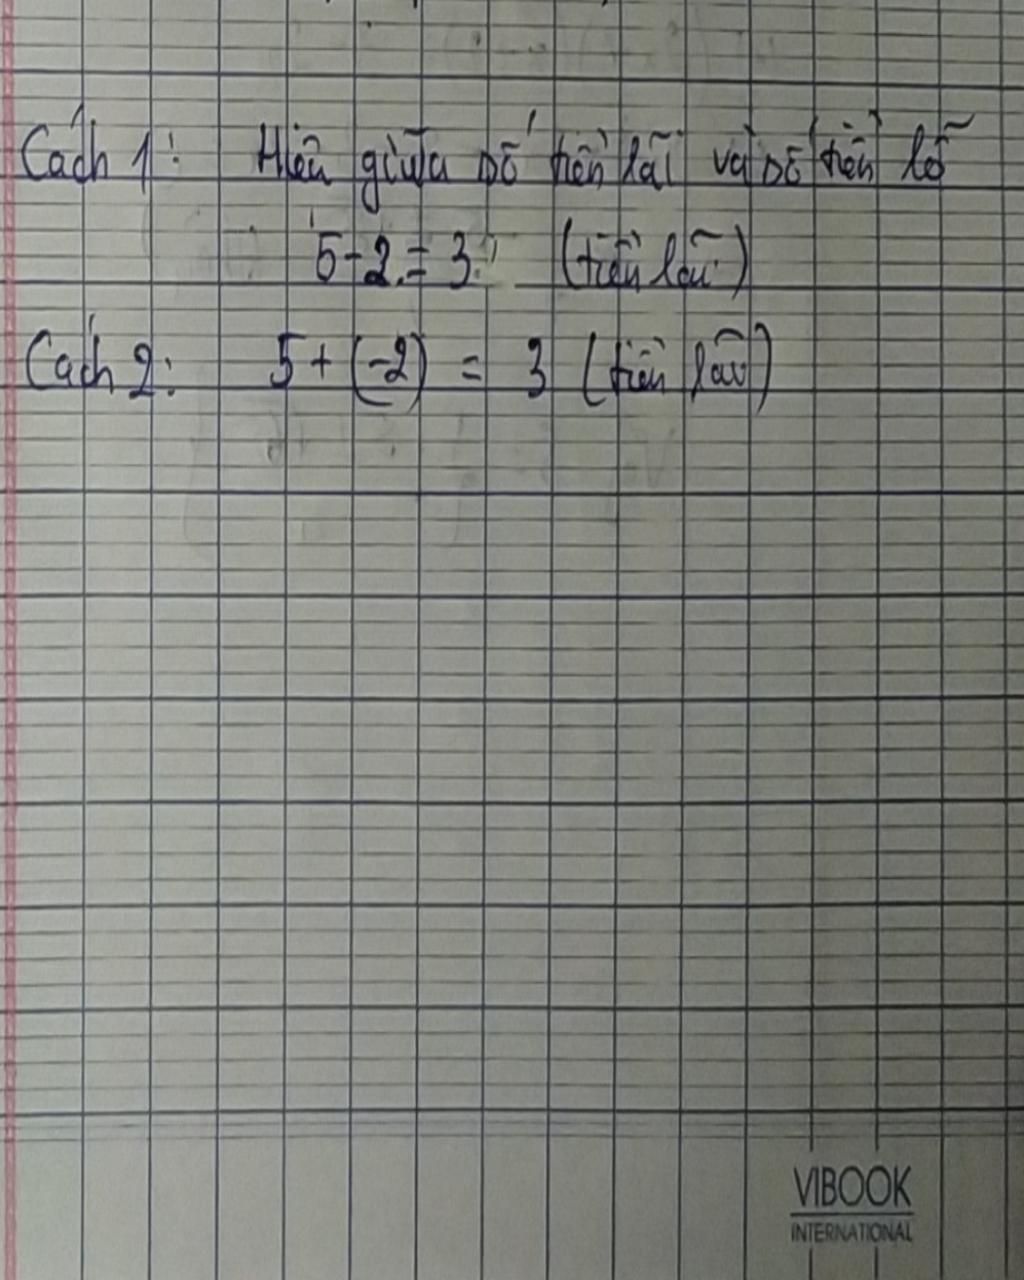 Cách 1: Hiệu giữa số tiền lãi và số tiền lỗ
5-2 = 3 (tiền lãi)
Cách 2: 5 + (-2) = 3 (tiền lãi)
VIBOOK
INTERNATIONAL